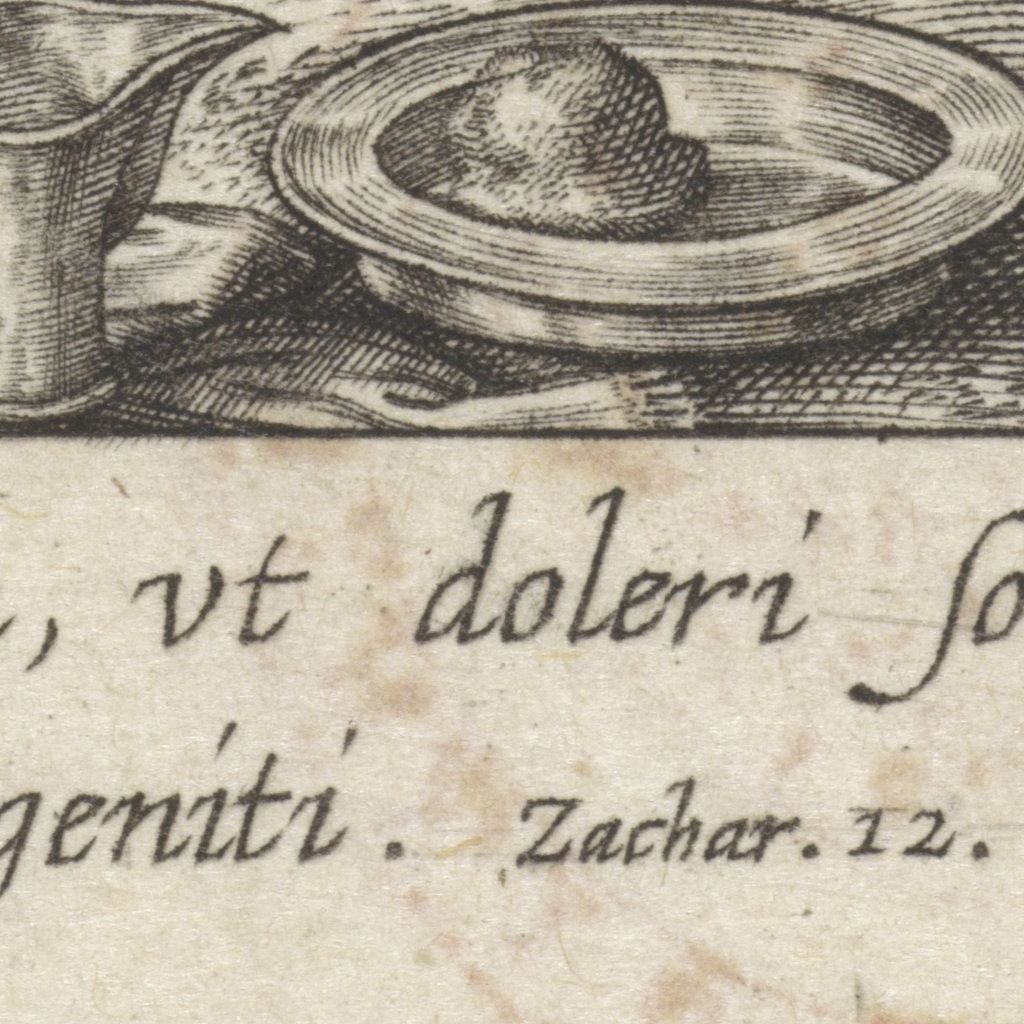 , vt doleri ſo
geniti. Zachar. 12.